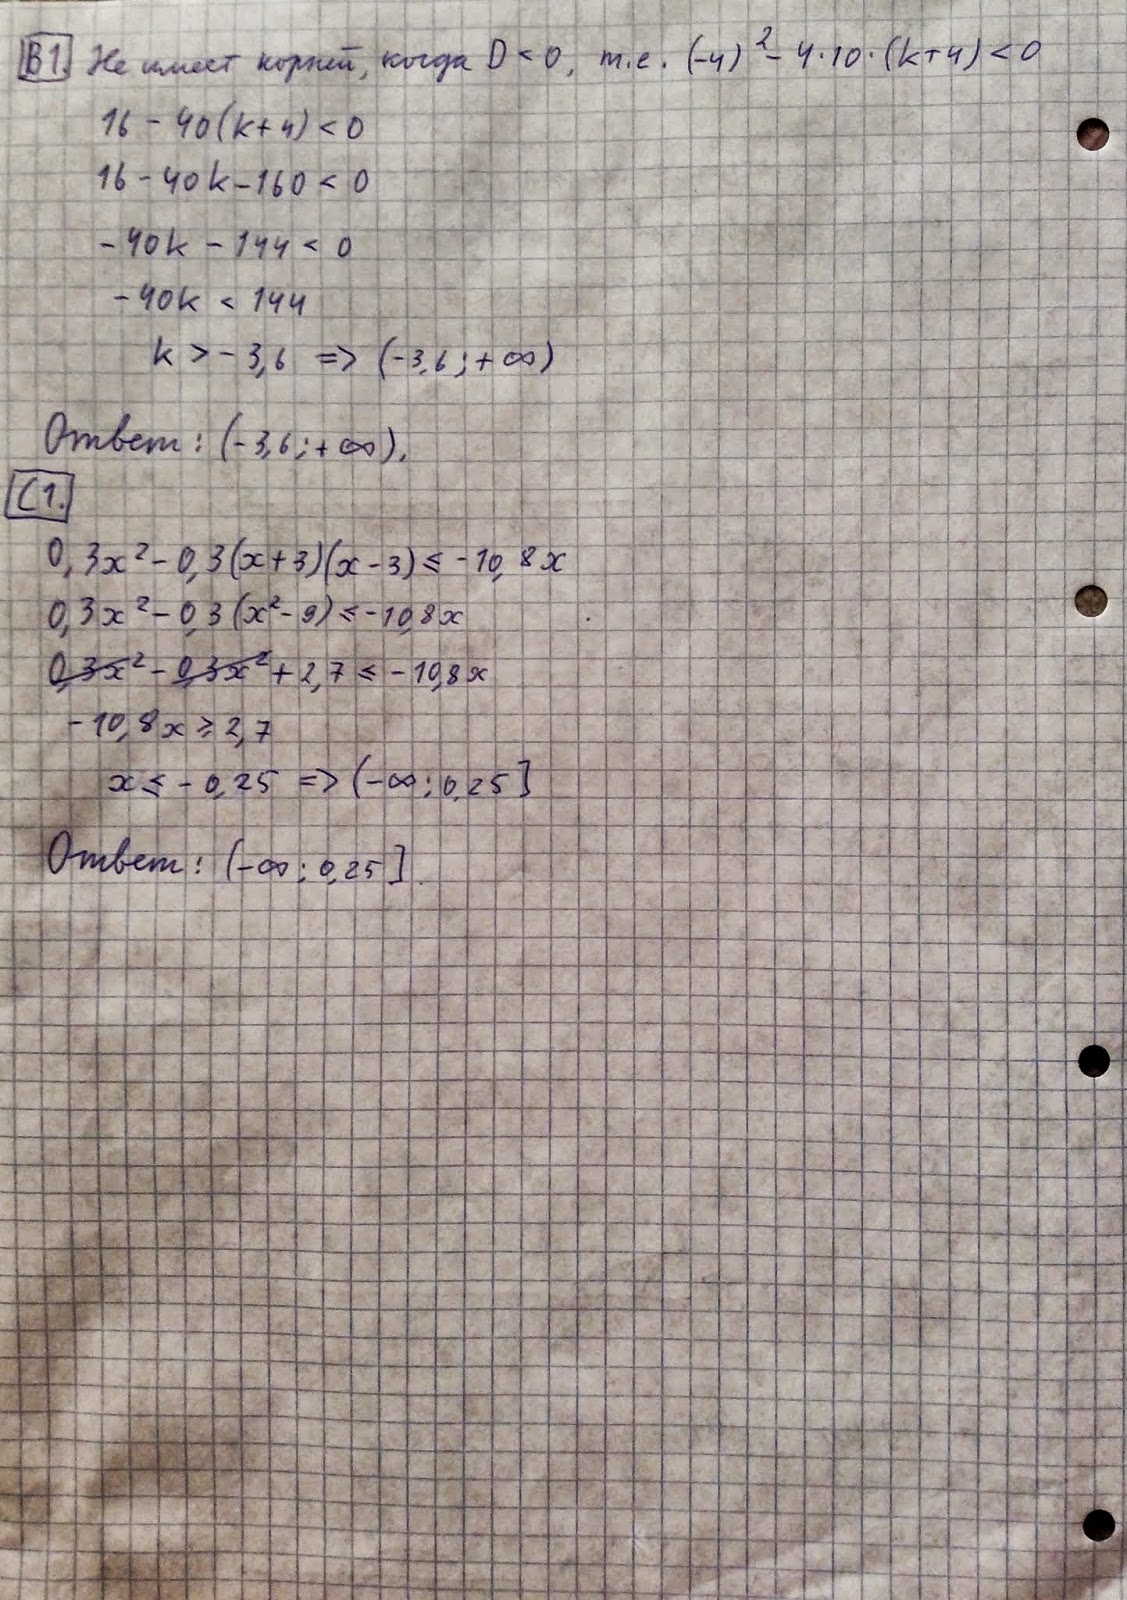 B1. Не имеет корней, когда D < 0, т.е. (-4)² - 4·10·(k+4) < 0
16 - 40(k+4) < 0
16 - 40k - 160 < 0
-40k - 144 < 0
-40k < 144
k > -3,6 => (-3,6; +∞)
Ответ: (-3,6; +∞).
C1.
0,3x² - 0,3(x+3)(x-3) ≤ -10,8x
0,3x² - 0,3(x²-9) ≤ -10,8x
0,3x² - 0,3x² + 2,7 ≤ -10,8x
-10,8x ≥ 2,7
x ≤ -0,25 => (-∞; 0,25]
Ответ: (-∞; 0,25].